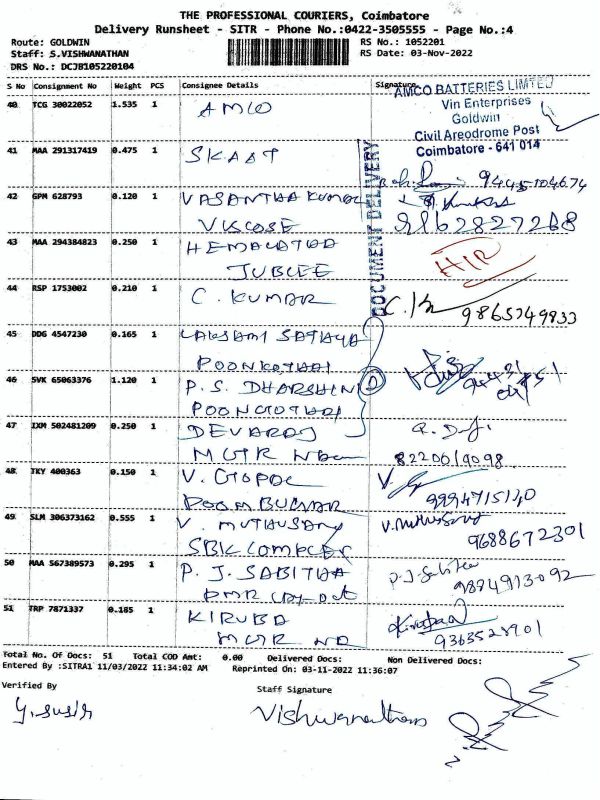 THE PROFESSIONAL COURIERS, Coimbatore
Delivery Runsheet - SITR - Phone No.:0422-3505555 - Page No.:4
Route: GOLDWIN
RS No.: 1052201
Staff: S.VISHWANATHAN
RS Date: 03-Nov-2022
DRS No.: DCJB105220104
S No Consignment No Weight PCS Consignee Details Signature
40 TCG 30022052 1.535 1 AMCO
AMCO BATTERIES LIMITED
Vin Enterprises
Goldwin
Civil Areodrome Post
Coimbatore - 641 014
DOCUMENT DELIVERY
41 MAA 291317419 0.475 1 SKAAT
42 GPM 628793 0.120 1 VASANTHA KUMAR
VISCOSE
43 MAA 294384823 0.250 1 HEMALATHA
JUBLEE
HIR
44 RSP 1753002 0.210 1 C. KUMAR
9865749833
45 DDG 4547230 0.165 1 SATHYA
46 SVK 65063376 1.120 1 P. S. DHARSHINI
47 IXM 502481209 0.250 1 DEVARAJ
MGR
8220019098
48 TKY 400363 0.150 1 V. GOPAL
49 SLM 306373162 0.555 1 V. MUTHUSAMY
SBK COMPLEX
9688672301
50 MAA 567389573 0.295 1 P. J. SABITHA
P.J. Sabitha
9884913092
51 TRP 7871337 0.185 1 KIRUBA
MGR
Total No. Of Docs: 51 Total COD Amt: 0.00 Delivered Docs: Non Delivered Docs:
Entered By :SITRA1 11/03/2022 11:34:02 AM Reprinted On: 03-11-2022 11:36:07
Verified By
Staff Signature
Vishwanathan